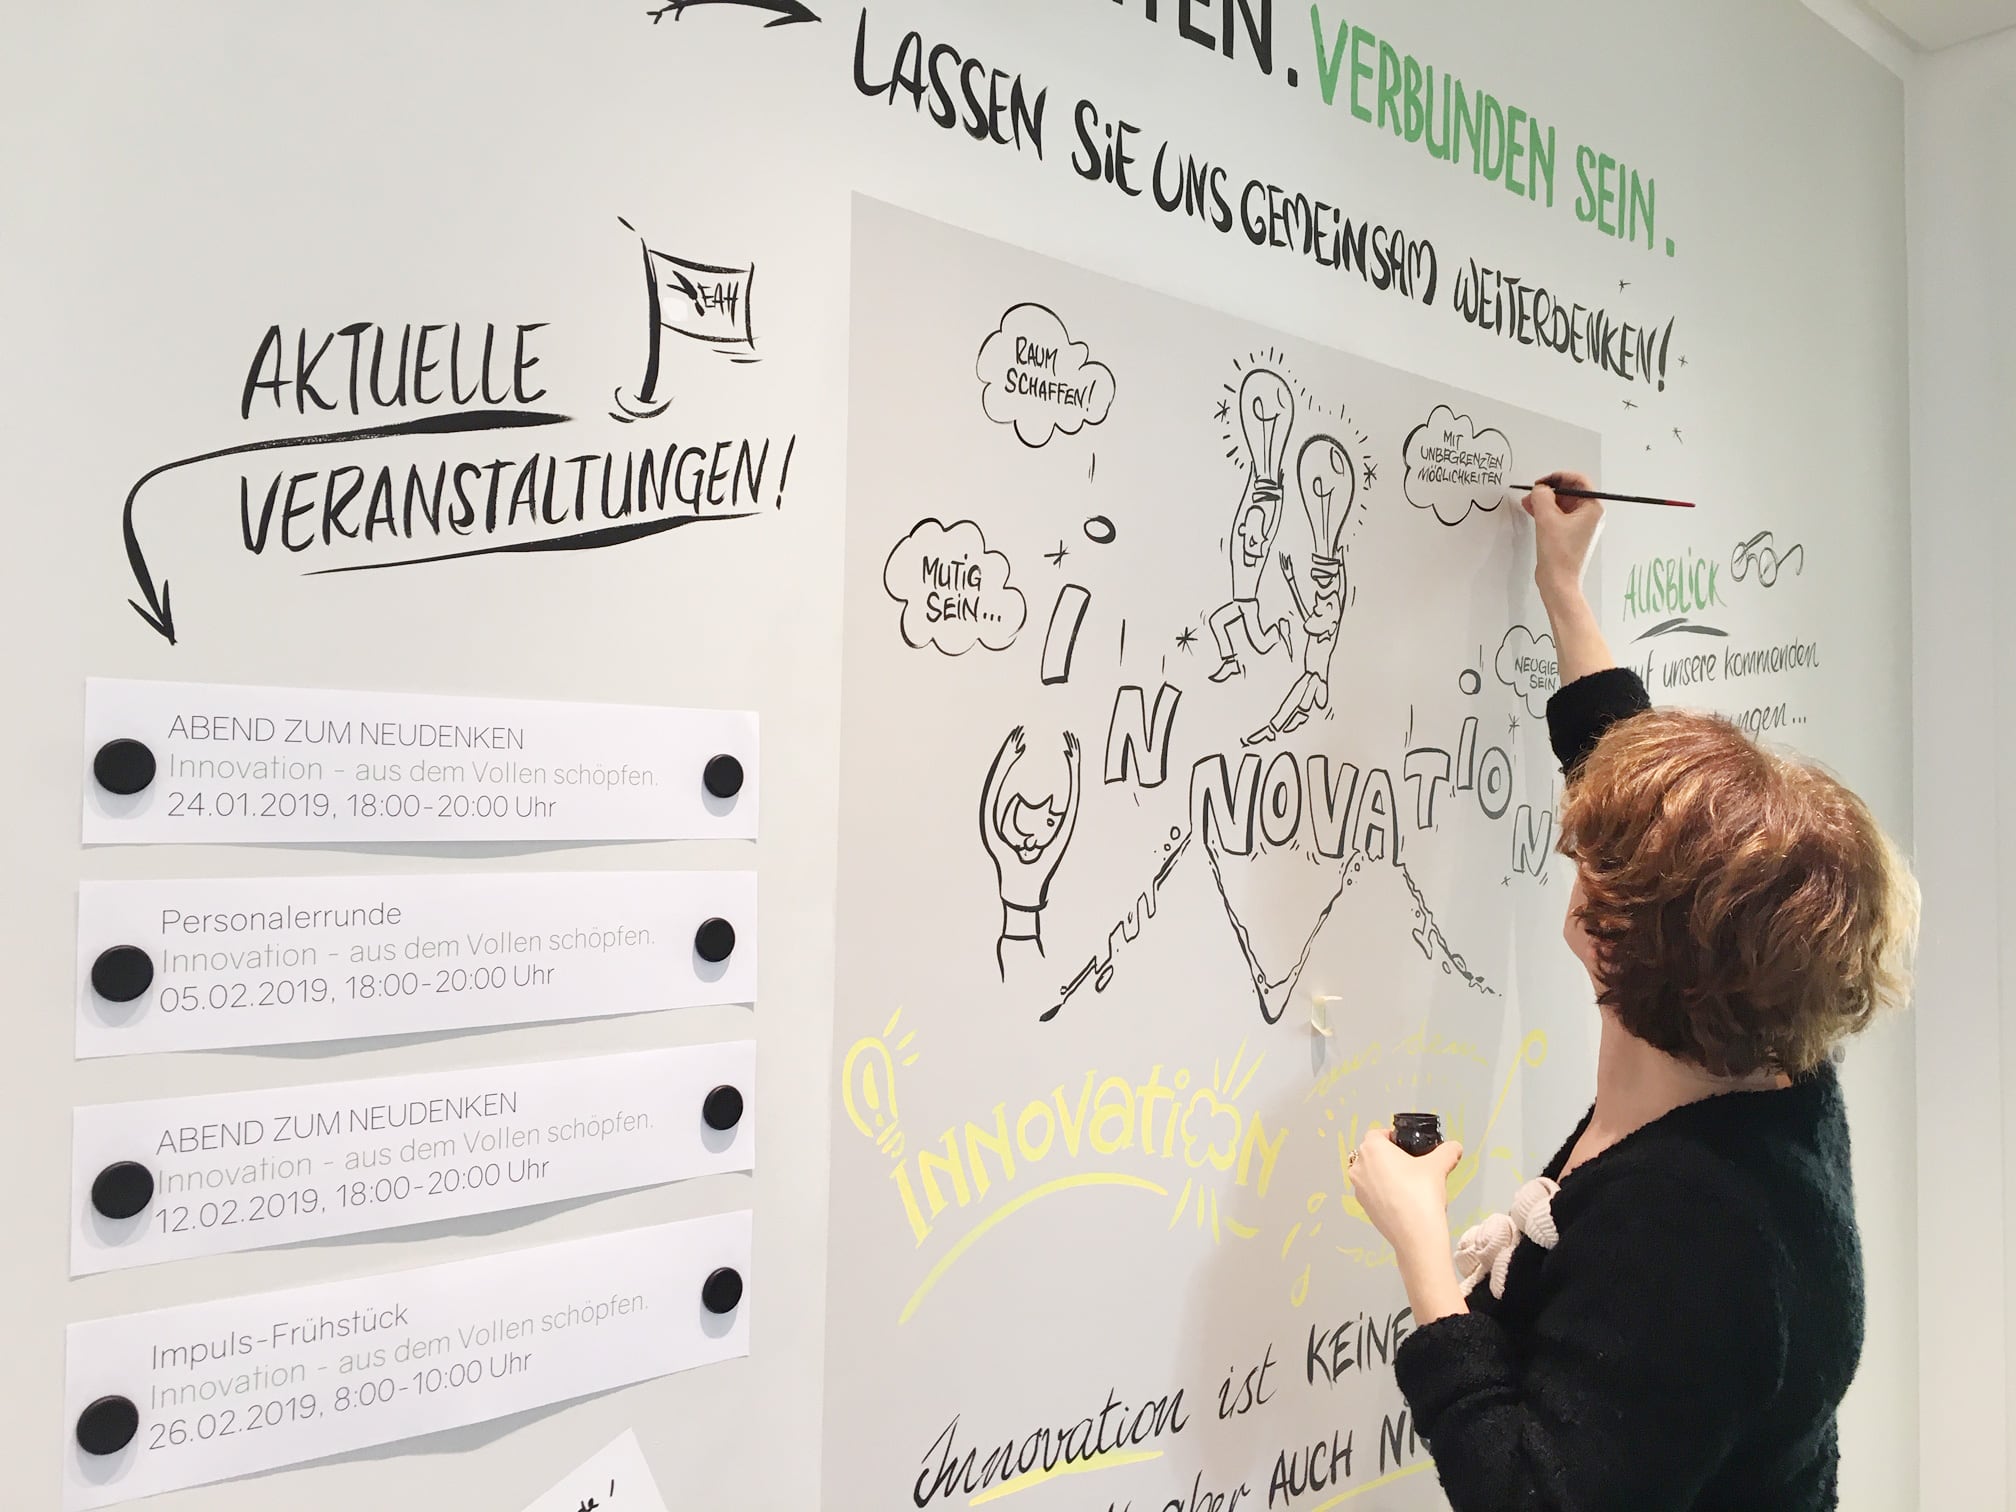 VERBUNDEN SEIN.
LASSEN SIE UNS GEMEINSAM WEITERDENKEN!
YEAH
AKTUELLE
VERANSTALTUNGEN!
ABEND ZUM NEUDENKEN
Innovation - aus dem Vollen schöpfen.
24.01.2019, 18:00-20:00 Uhr
Personalerrunde
Innovation - aus dem Vollen schöpfen.
05.02.2019, 18:00-20:00 Uhr
ABEND ZUM NEUDENKEN
Innovation - aus dem Vollen schöpfen.
12.02.2019, 18:00-20:00 Uhr
Impuls-Frühstück
Innovation - aus dem Vollen schöpfen.
26.02.2019, 8:00-10:00 Uhr
RAUM
SCHAFFEN!
MIT
UNBEGRENZTEN
MÖGLICHKEITEN
MUTIG
SEIN...
SEIN
INNOVATION
INNOVATION
aus dem
Innovation ist
aber AUCH
AUSBLICK
unsere kommenden